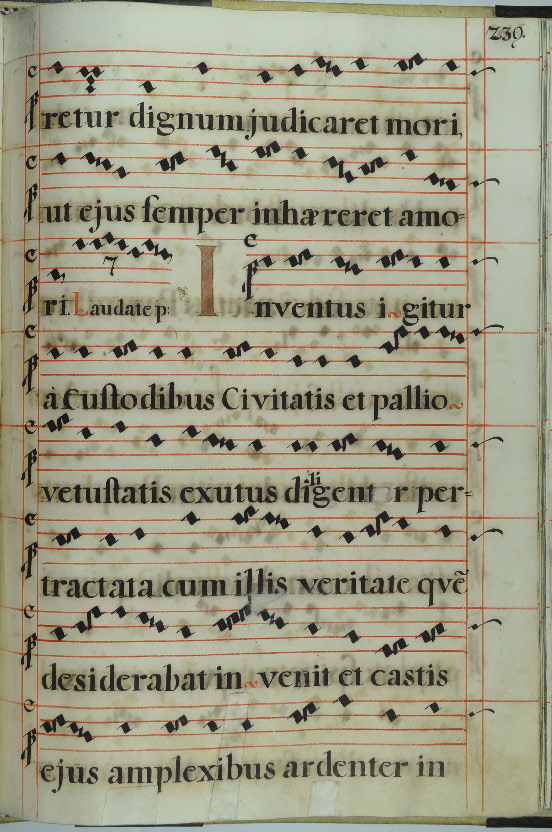 239.
retur dignum judicaret mori,
ut ejus semper inhæreret amo=
ri. Laudate p: Inventus i~gitur
à Custodibus Civitatis et pallio~
vetustatis exutus diligent r per=
tractata cum illis veritate qvẽ
desiderabat in~venit et castis
ejus amplexibus ardenter in